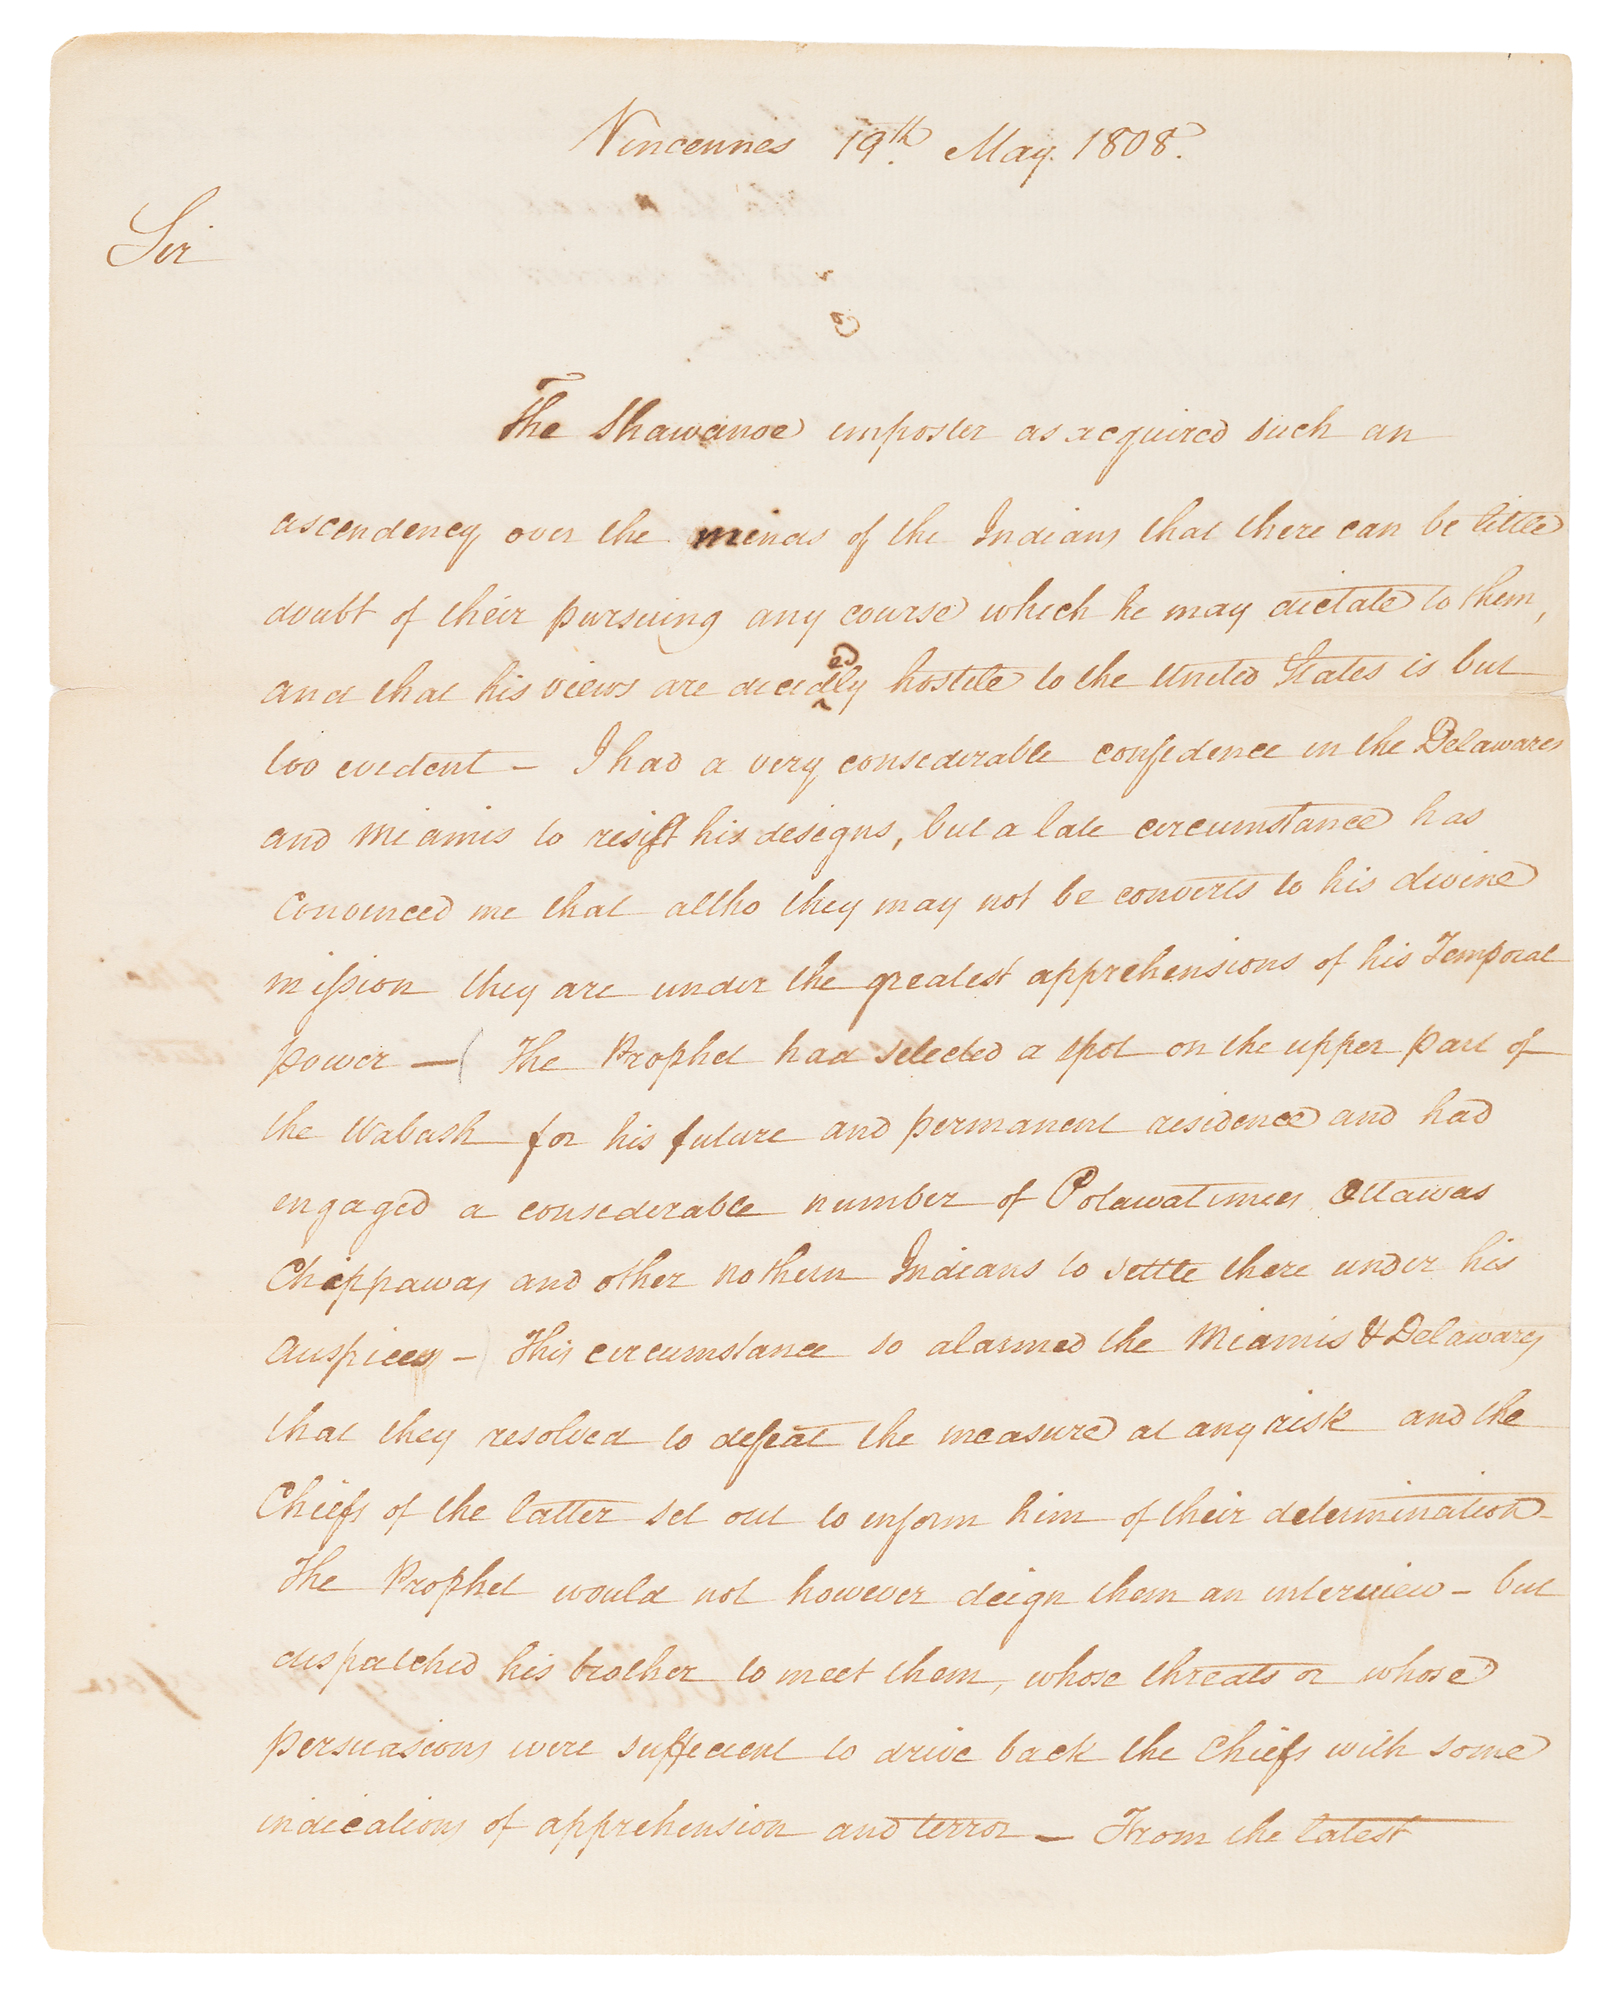 Vincennes 19th. May. 1808.
Sir
The Shawanoe imposter as acquired such an
ascendency over the minds of the Indians that there can be little
doubt of their pursuing any course which he may dictate to them,
and that his views are decidedly hostile to the United States is but
too evident - I had a very considerable confidence in the Delawares
and Miamis to resist his designs, but a late circumstance has
convinced me that altho they may not be converts to his divine
mission they are under the greatest apprehensions of his Temporal
power — The Prophet had selected a spot on the upper part of
the Wabash for his future and permanent residence and had
engaged a considerable number of Potawatimies Ottawas
Chippaways and other nothern Indians to settle there under his
auspices - This circumstance so alarmed the Miamis & Delawares
that they resolved to defeat the measure at any risk and the
Chiefs of the latter set out to inform him of their determination-
The Prophet would not however deign them an interview - but
dispatched his brother to meet them, whose threats or whose
persuasions were sufficient to drive back the Chiefs with some
indications of apprehension and terror — From the latest